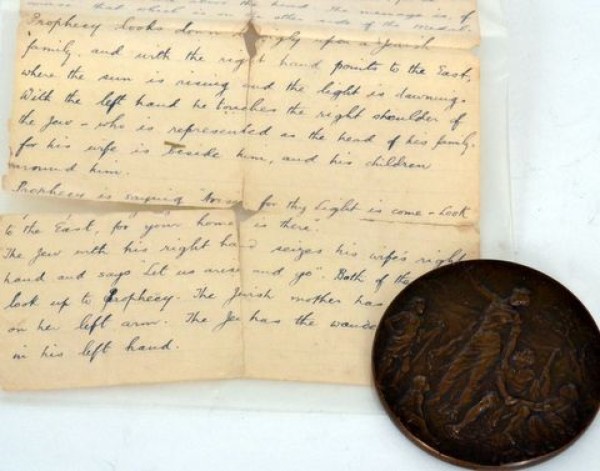 above the head. The message is, of
course that which is on the other side of the medal.
Prophecy looks down lovingly upon a Jewish
family, and with the right hand points to the East,
where the sun is rising and the light is dawning.
With the left hand he touches the right shoulder of
the Jew - who is represented as the head of his family,
for his wife is beside him, and his children
around him.
Prophecy is saying "Arise, for thy Light is come - Look
to the East, for your home is there".
The Jew with his right hand seizes his wife's right
hand and says "Let us arise and go". Both of the
look up to Prophecy. The Jewish mother has
on her left arm. The Jew has the
in his left hand.